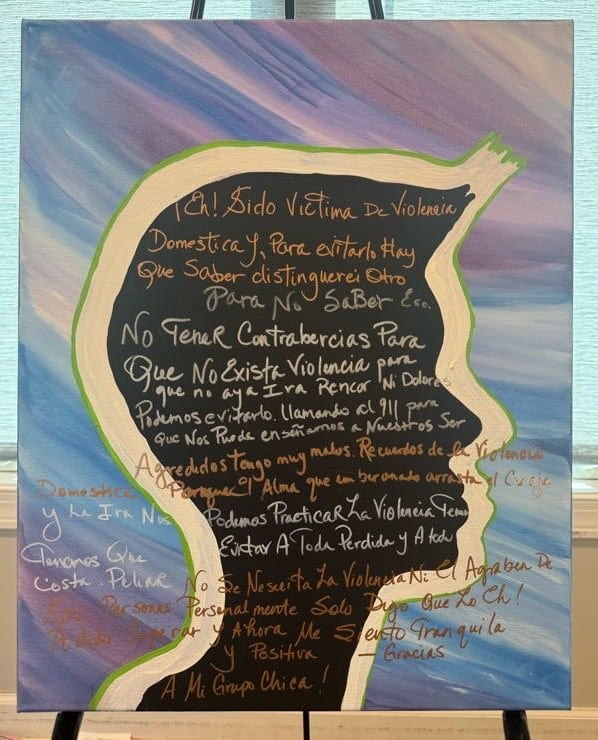 ¡Eh! Sido Victima De Violencia
Domestica Y, Para evitarlo Hay
Que Saber distinguerei Otro
Para No Saber Eso.
No Tener Contrabercias Para
Que No Exista Violencia para
que no aya Ira Rencor Ni Dolores
Podemos evitarlo. llamando al 911 para
Que Nos Pueda enseñarnos a Nuestros Ser
Agredidos tengo muy malos. Recuerdos de la Violencia
Domestica Porque El Alma que un
Y La Ira Nos Podemos Practicar La Violencia
Tenemos Que Evitar A Toda Perdida y
Costa. Peliar No Se La Violencia Ni El De
Las Personas Personalmente Solo Digo Que Lo Eh!
Podido Superar y Ahora Me Siento Tranquila
Y Positiva — Gracias
A Mi Grupo Chica!